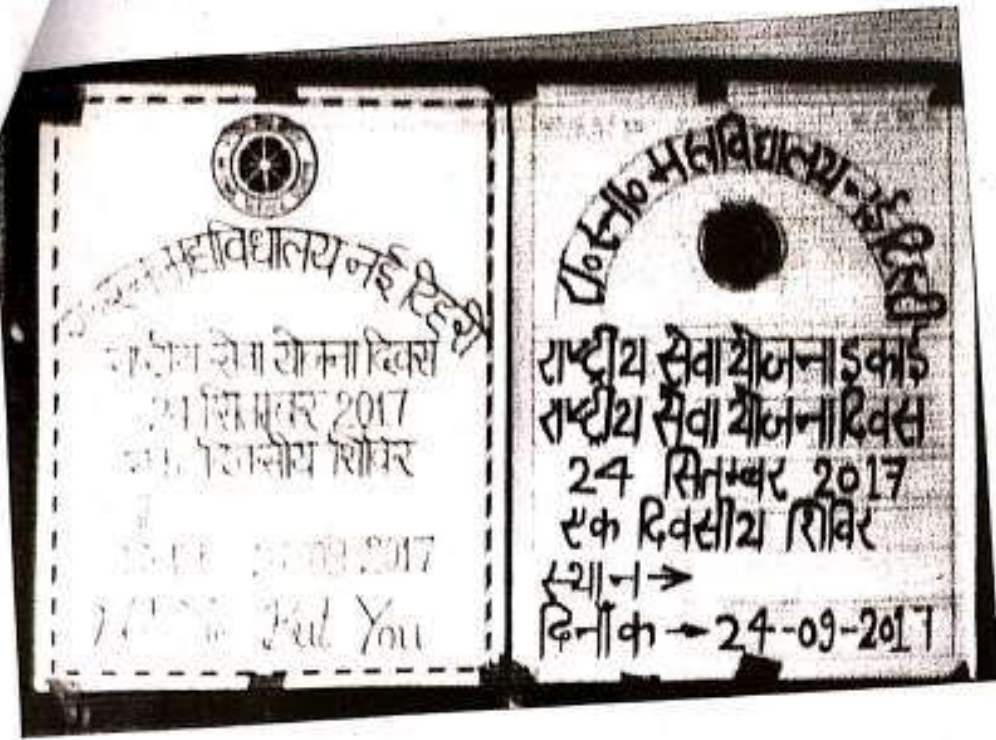 महाविधालय नई टिहरी
राष्ट्रीय सेवा योजना दिवस
24 सितम्बर 2017
दिवसीय शिविर
09 2017
But You
रा० स्ना० महाविद्यालय नई टिहरी
राष्ट्रीय सेवा योजना इकाई
राष्ट्रीय सेवा योजना दिवस
24 सितम्बर 2017
एक दिवसीय शिविर
स्थान→
दिनाँक → 24-09-2017